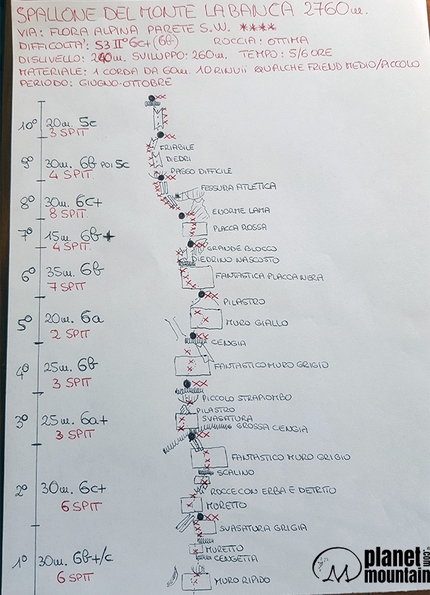 SPALLONE DEL MONTE LA BANCA 2760m.
VIA: FLORA ALPINA PARETE S.W. ****
DIFFICOLTA': S3 II° 6c+ (6b) ROCCIA: OTTIMA
DISLIVELLO: 240m. SVILUPPO: 260m. TEMPO: 5/6 ORE
MATERIALE: 1 CORDA DA 60m. 10 RINVII QUALCHE FRIEND MEDIO/PICCOLO
PERIODO: GIUGNO-OTTOBRE
10° 20m. 5c
3 SPIT
FRIABILE
DIEDRI
9° 30m. 6b POI 5c
4 SPIT
PASSO DIFFICILE
FESSURA ATLETICA
8° 30m. 6c+
8 SPIT
ENORME LAMA
7° 15m. 6b+
4 SPIT
PLACCA ROSSA
GRANDE BLOCCO
DIEDRINO NASCOSTO
6° 35m. 6b
7 SPIT
FANTASTICA PLACCA NERA
PILASTRO
5° 20m. 6a
2 SPIT
MURO GIALLO
CENGIA
4° 25m. 6b
3 SPIT
FANTASTICO MURO GRIGIO
PICCOLO STRAPIOMBO
PILASTRO
3° 25m. 6a+
3 SPIT
SVASATURA
GROSSA CENGIA
FANTASTICO MURO GRIGIO
SCALINO
2° 30m. 6c+
6 SPIT
ROCCE CON ERBA E DETRITO
MURETTO
SVASATURA GRIGIA
MURETTO
CENGETTA
1° 30m. 6b+/c
6 SPIT
MURO RIPIDO
planet
mountain.com